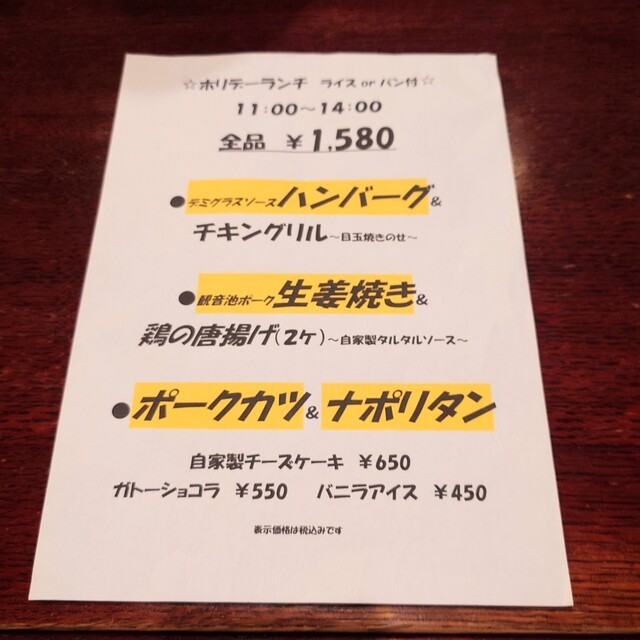 ☆ホリデーランチ ライス or パン付☆
11:00～14:00
全品 ￥1,580
●デミグラスソースハンバーグ&
チキングリル～目玉焼きのせ～
●観音池ポーク生姜焼き&
鶏の唐揚げ(2ケ)～自家製タルタルソース～
●ポークカツ&ナポリタン
自家製チーズケーキ ￥650
ガトーショコラ ￥550 バニラアイス ￥450
表示価格は税込みです